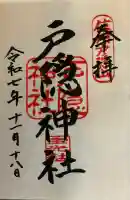 奉拝
戸隠神社
令和七年十一月十八日